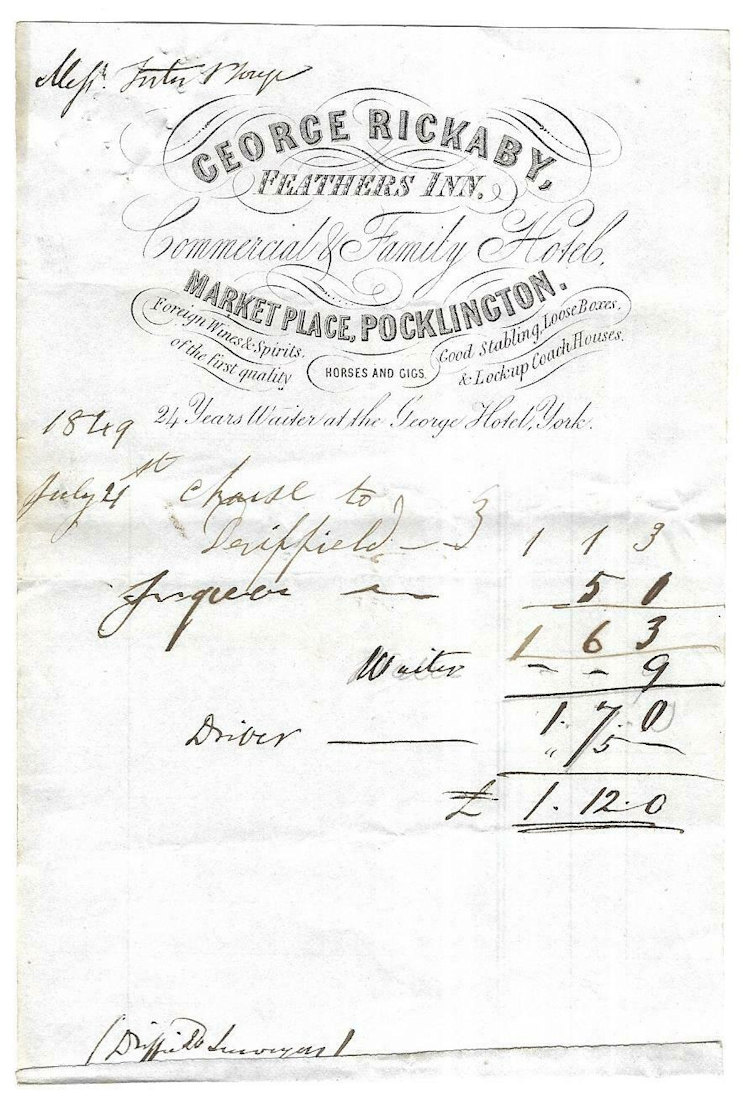 Messrs.
GEORGE RICKABY,
FEATHERS INN.
Commercial & Family Hotel.
MARKET PLACE, POCKLINGTON.
Foreign Wines & Spirits. of the first quality
HORSES AND GIGS.
Good Stabling, Loose Boxes. & Lock up Coach Houses.
24 Years Waiter at the George Hotel, York.
1849
July 21st Chaise to
Driffield — 1 1 3
— 5 0
1 6 3
Waiter - - 9
1. 7. 0
Driver — " 5 —
£ 1. 12. 0
(Driffield Surveyors)